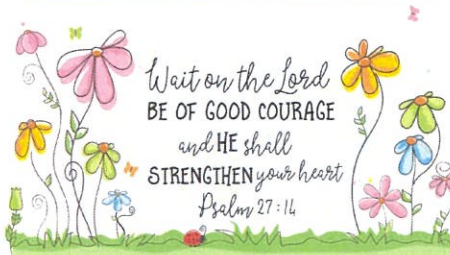 Wait on the Lord
BE OF GOOD COURAGE
and HE shall
STRENGTHEN your heart
Psalm 27:14